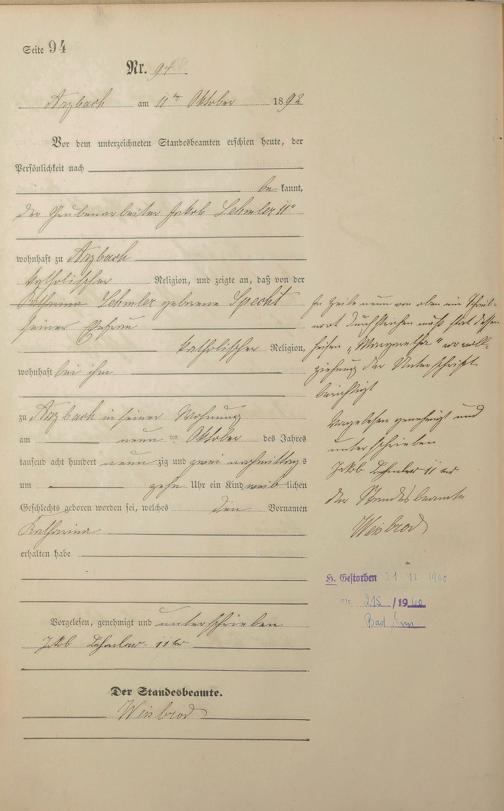 Seite 94
Nr. 94
Arzbach am 11ten Oktober 1892
Vor dem unterzeichneten Standesbeamten erschien heute, der
Persönlichkeit nach
be kannt,
der Grubenarbeiter Jakob Lehmler IIr
wohnhaft zu Arzbach
katholischer Religion, und zeigte an, daß von der
Lehmler geborene Specht
seiner Ehefrau
katholischer Religion,
wohnhaft bei ihm
zu Arzbach in seiner Wohnung
am neun ten Oktober des Jahres
tausend acht hundert neun zig und zwei nachmittags
um zehn Uhr ein Kind weib lichen
Geschlechts geboren worden sei, welches den Vornamen
Katharina
erhalten habe
Vorgelesen, genehmigt und unterschrieben
Jakob Lehmler IIter
Der Standesbeamte.
Weisbrod
In Zeile neun von oben ein
wort durchstrichen muß statt dessen
heißen „Margaretha“ vor voll-
ziehung der Unterschrift
berichtigt
Vorgelesen genehmigt und
unterschrieben
Jakob Lehmler IIter
der Standesbeamte
Weisbrod
H. Gestorben
Nr. 215 /19
Bad Ems